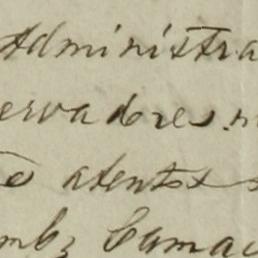 Administra
ervadores.
atentos
Cama